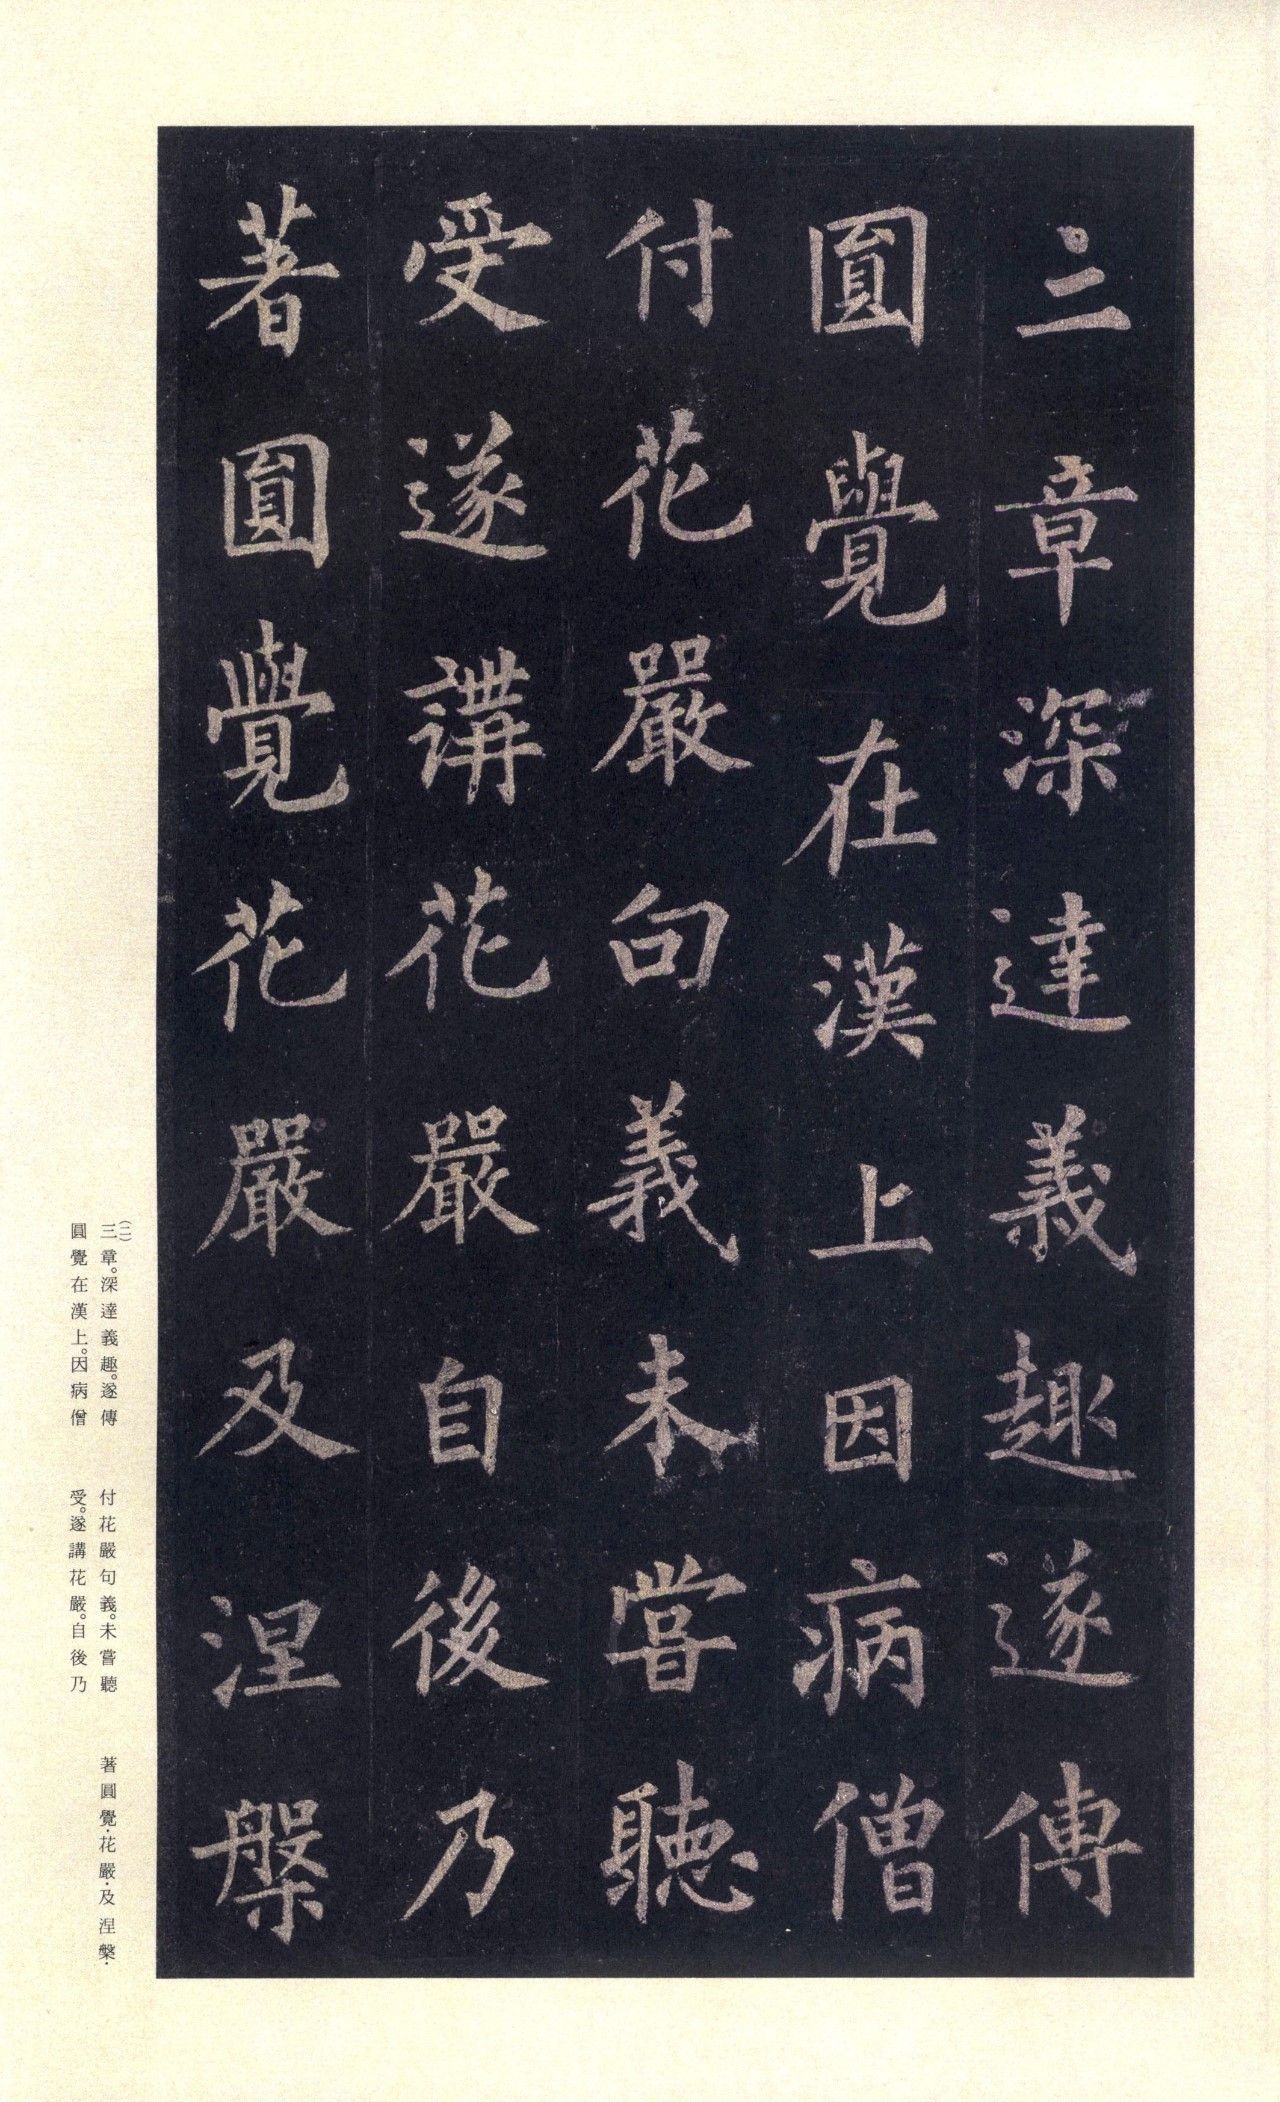 三章深達義趣遂傳
圓覺在漢上因病僧
付花嚴句義未嘗聽
受遂講花嚴自後乃
著圓覺花嚴及涅槃
(二)
三章。深達義趣。遂傳
圓覺在漢上。因病僧
付花嚴句義。未嘗聽
受。遂講花嚴。自後乃
著圓覺·花嚴·及涅槃·